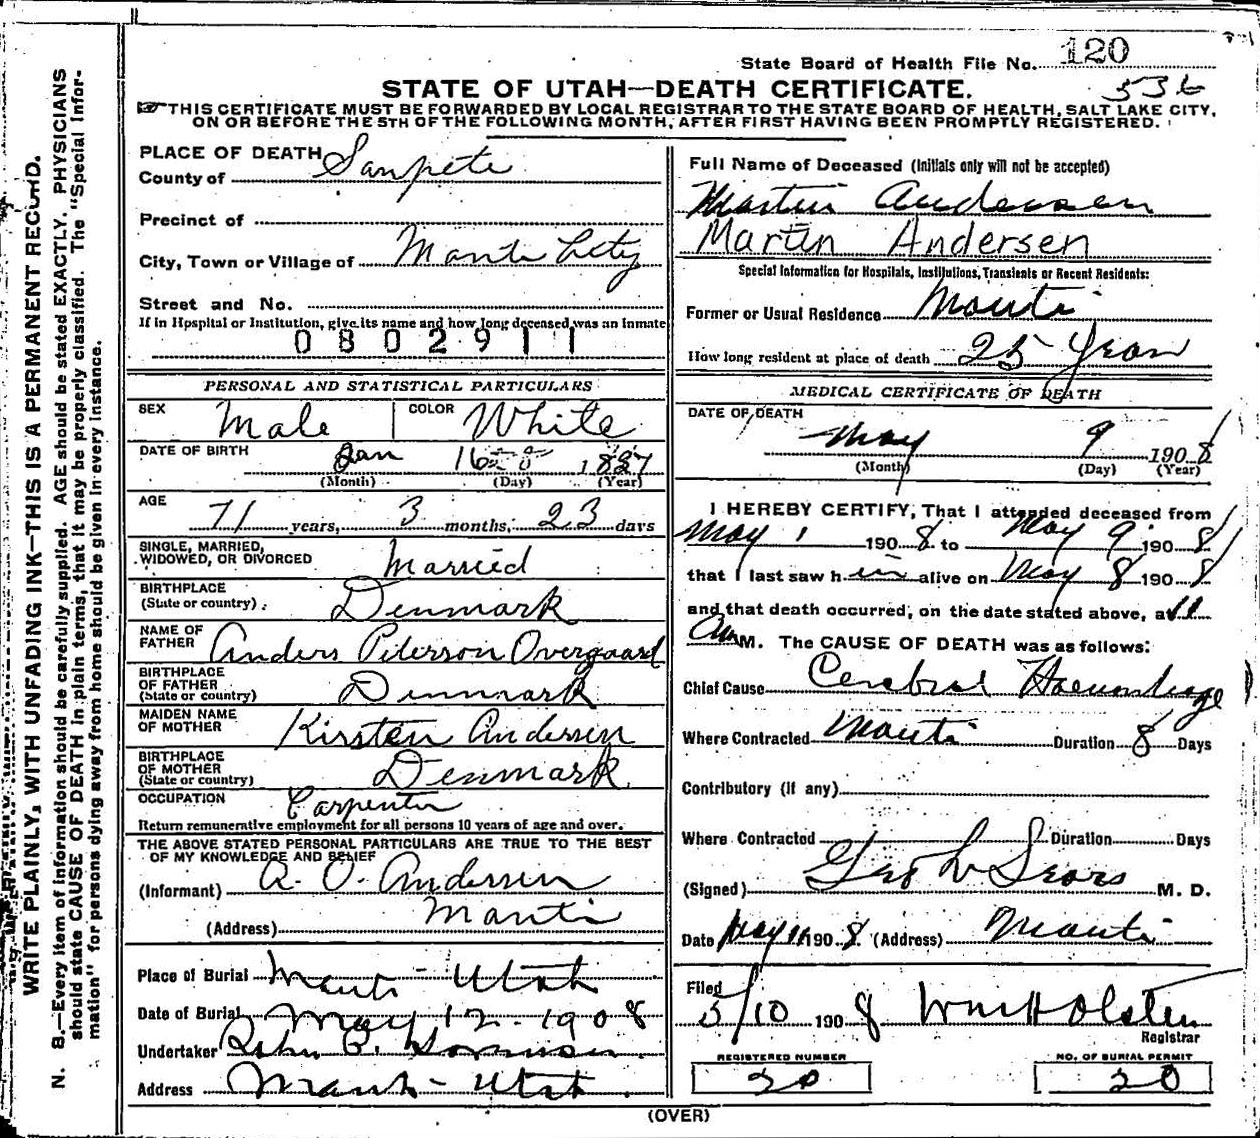 State Board of Health File No. 120
536
STATE OF UTAH—DEATH CERTIFICATE.
THIS CERTIFICATE MUST BE FORWARDED BY LOCAL REGISTRAR TO THE STATE BOARD OF HEALTH, SALT LAKE CITY,
ON OR BEFORE THE 5TH OF THE FOLLOWING MONTH, AFTER FIRST HAVING BEEN PROMPTLY REGISTERED.
WRITE PLAINLY, WITH UNFADING INK—THIS IS A PERMANENT RECORD.
N. B.—Every item of information should be carefully supplied. AGE should be stated EXACTLY. PHYSICIANS
should state CAUSE OF DEATH in plain terms, that it may be properly classified. The "Special Infor-
mation" for persons dying away from home should be given in every instance.
PLACE OF DEATH
County of Sanpete
Precinct of
City, Town or Village of Manti City
Street and No.
If in Hospital or Institution, give its name and how long deceased was an inmate
0802911
PERSONAL AND STATISTICAL PARTICULARS
SEX Male COLOR White
DATE OF BIRTH Jan 16 1837
(Month) (Day) (Year)
AGE 71 years, 3 months, 23 days
SINGLE, MARRIED,
WIDOWED, OR DIVORCED Married
BIRTHPLACE
(State or country) Denmark
NAME OF
FATHER Anders Peterson Overgaard
BIRTHPLACE
OF FATHER
(State or country) Denmark
MAIDEN NAME
OF MOTHER Kirsten Andersen
BIRTHPLACE
OF MOTHER
(State or country) Denmark
OCCUPATION Carpenter
Return remunerative employment for all persons 10 years of age and over.
THE ABOVE STATED PERSONAL PARTICULARS ARE TRUE TO THE BEST
OF MY KNOWLEDGE AND BELIEF
(Informant) A. O. Andersen
(Address) Manti
Place of Burial Manti - Utah
Date of Burial May 12 - 1908
Undertaker
Address Manti - Utah
Full Name of Deceased (Initials only will not be accepted)
Martin Andersen
Martin Andersen
Special Information for Hospitals, Institutions, Transients or Recent Residents:
Former or Usual Residence Manti
How long resident at place of death 25 Years
MEDICAL CERTIFICATE OF DEATH
DATE OF DEATH
May 9 1908
(Month) (Day) (Year)
I HEREBY CERTIFY, That I attended deceased from
May 1 1908 to May 9 1908
that I last saw him alive on May 8 1908
and that death occurred, on the date stated above, at 11
A M. The CAUSE OF DEATH was as follows:
Chief Cause Cerebral Haemorhage
Where Contracted Manti Duration 8 Days
Contributory (if any)
Where Contracted Duration Days
(Signed) Geo L Sears M. D.
Date May 11 1908 (Address) Manti
Filed
5/10 1908 Wm H Olsten
Registrar
REGISTERED NUMBER
20
NO. OF BURIAL PERMIT
20
(OVER)